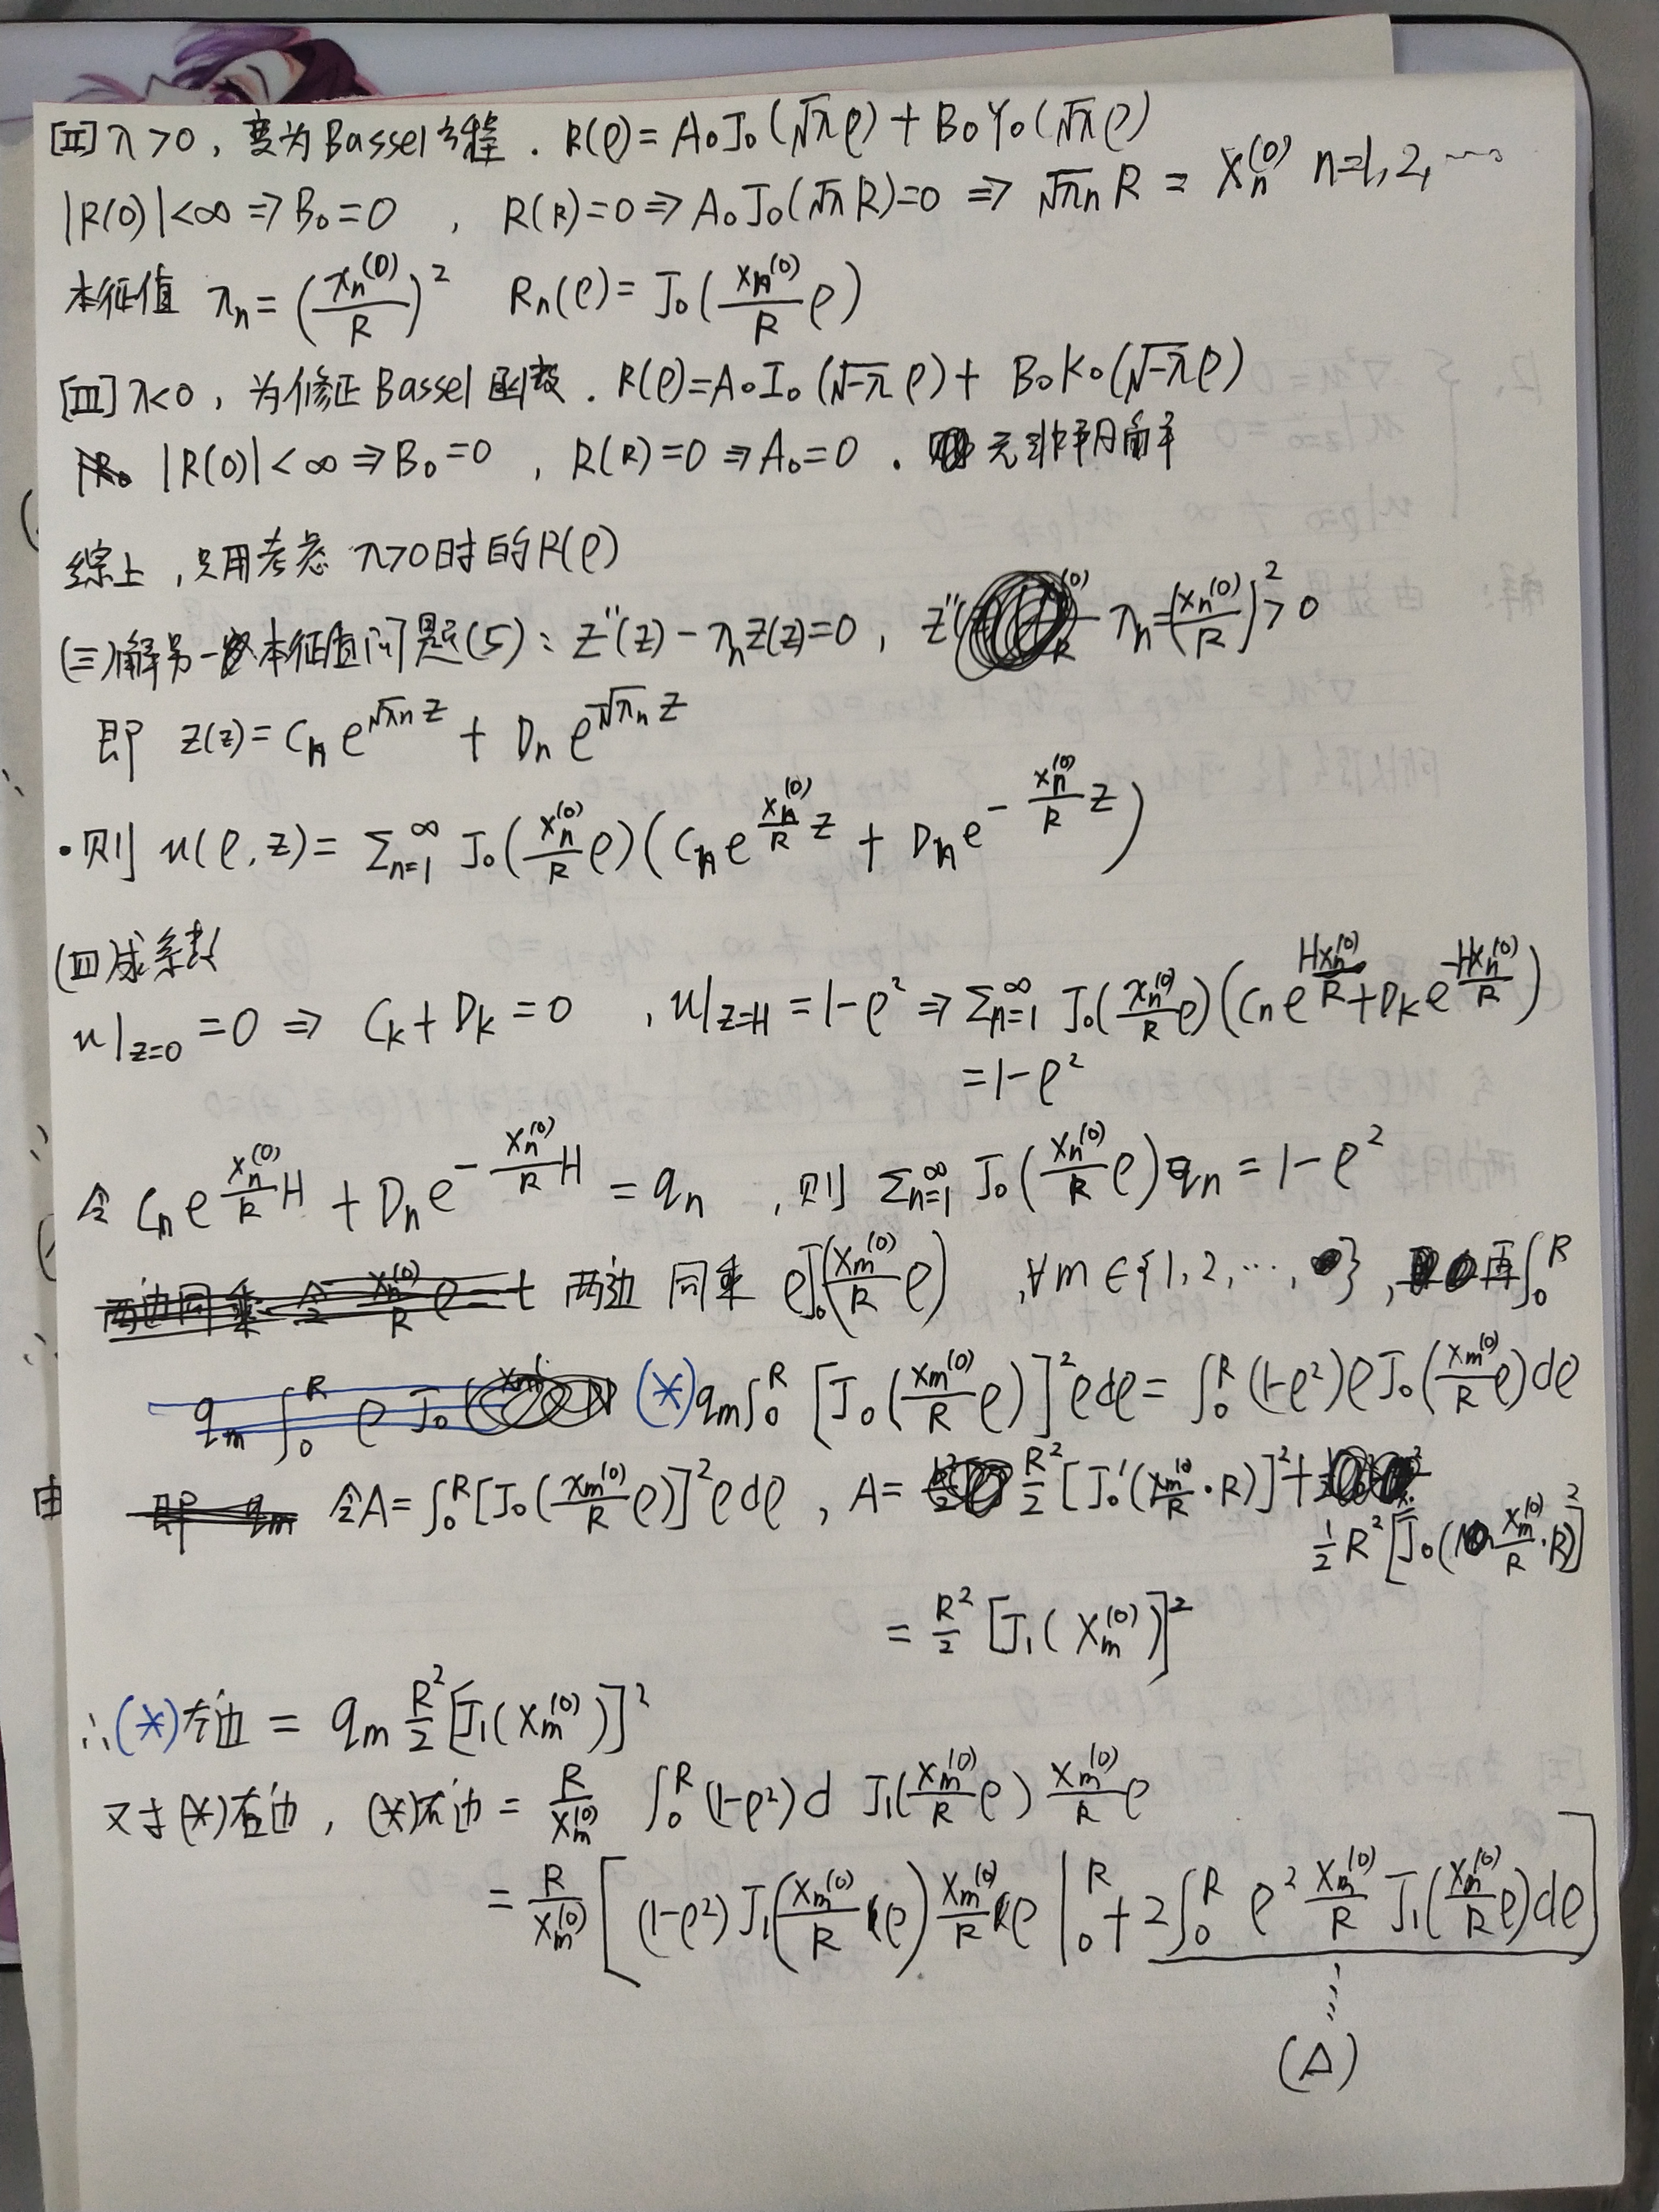 [II] λ>0, 变为Bassel方程. R(ρ)=A₀J₀(√λρ)+B₀Y₀(√λρ)
|R(0)|<∞⇒B₀=0, R(R)=0⇒A₀J₀(√λR)=0 ⇒ √λₙR = xₙ⁽⁰⁾ n=1,2,…
本征值 λₙ=(xₙ⁽⁰⁾/R)² Rₙ(ρ)=J₀(xₙ⁽⁰⁾/R ρ)
[III] λ<0, 为修正Bassel函数. R(ρ)=A₀I₀(√-λρ)+B₀K₀(√-λρ)
|R(0)|<∞⇒B₀=0, R(R)=0⇒A₀=0. 无非平凡解
综上,只用考虑 λ>0时的R(ρ)
(三)解另一本征值问题(5): Z''(z)-λₙZ(z)=0, λₙ=(xₙ⁽⁰⁾/R)²>0
即 Z(z)=Cₙe^{√λₙz}+Dₙe^{-√λₙz}
·则 u(ρ,z)=Σₙ₌₁^∞ J₀(xₙ⁽⁰⁾/R ρ)(Cₙe^{xₙ⁽⁰⁾/R z}+Dₙe^{-xₙ⁽⁰⁾/R z})
(四)求系数
u|z=0 =0 ⇒ Cₖ+Dₖ=0, u|z=H=1-ρ² ⇒ Σₙ₌₁^∞ J₀(xₙ⁽⁰⁾/R ρ)(Cₙe^{Hxₙ⁽⁰⁾/R}+Dₖe^{-Hxₙ⁽⁰⁾/R})
=1-ρ²
令 Cₙe^{xₙ⁽⁰⁾/R H}+Dₙe^{-xₙ⁽⁰⁾/R H}=qₙ, 则 Σₙ₌₁^∞ J₀(xₙ⁽⁰⁾/R ρ)qₙ=1-ρ²
两边同乘 ρJ₀(xₘ⁽⁰⁾/R ρ), ∀m∈{1,2,…,}, 再∫₀^R
(*)qₘ∫₀^R [J₀(xₘ⁽⁰⁾/R ρ)]²ρdρ=∫₀^R (1-ρ²)ρJ₀(xₘ⁽⁰⁾/R ρ)dρ
由
令A=∫₀^R[J₀(xₘ⁽⁰⁾/R ρ)]²ρdρ, A=R²/2[J₀'(xₘ⁽⁰⁾/R·R)]²+
½R²[J₀(xₘ⁽⁰⁾/R·R)]²
=R²/2[J₁(xₘ⁽⁰⁾)]²
∴(*)左边 = qₘ R²/2[J₁(xₘ⁽⁰⁾)]²
又于(*)右边, (*)右边 = R/xₘ⁽⁰⁾ ∫₀^R (1-ρ²)d J₁(xₘ⁽⁰⁾/R ρ) xₘ⁽⁰⁾/R ρ
= R/xₘ⁽⁰⁾ [(1-ρ²)J₁(xₘ⁽⁰⁾/R ρ)xₘ⁽⁰⁾/R ρ|₀^R + 2∫₀^R ρ² xₘ⁽⁰⁾/R J₁(xₘ⁽⁰⁾/R ρ)dρ]
(Δ)